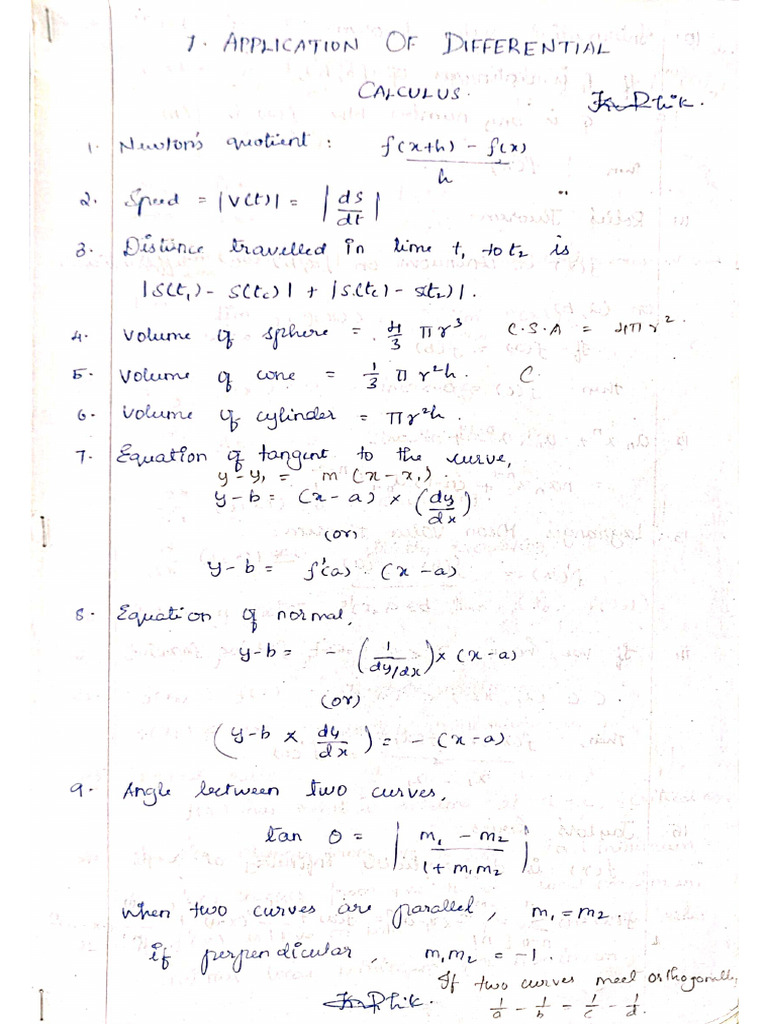 7. APPLICATION OF DIFFERENTIAL
CALCULUS.
1. Newton's quotient : f(x+h) - f(x) / h
2. Speed = |V(t)| = |ds/dt|
3. Distance travelled in time t₁ to t₂ is
|S(t₁) - S(tc)| + |S(tc) - S(t₂)|.
4. Volume of sphere = 4/3 πr³ C.S.A = 4πr².
5. Volume of cone = 1/3 πr²h. C
6. Volume of cylinder = πr²h.
7. Equation of tangent to the curve,
y-y₁ = m (x-x₁).
y-b = (x-a) × (dy/dx)
(or)
y-b = f'(a) . (x-a)
8. Equation of normal,
y-b = - (1/dy/dx) × (x-a)
(or)
(y-b × dy/dx) = - (x-a)
9. Angle between two curves,
tan θ = |m₁ - m₂ / 1 + m₁m₂|
when two curves are parallel, m₁ = m₂.
if perpendicular, m₁m₂ = -1.
If two curves meet orthogonally,
1/a - 1/b = 1/c - 1/d.